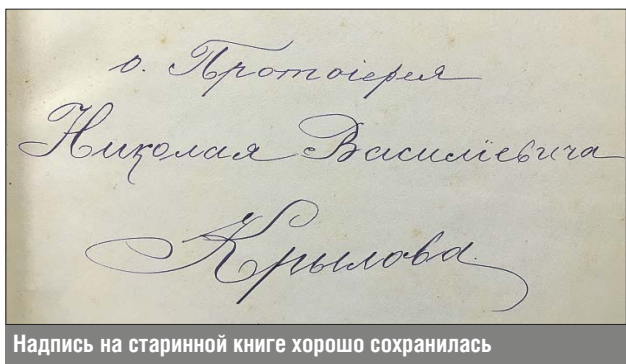 о. Протоіерея
Николая Василіевича
Крылова
Надпись на старинной книге хорошо сохранилась